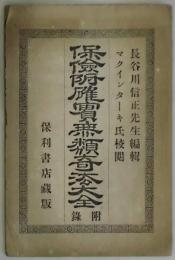 長谷川信正先生編輯
マクインターキ氏校閲
保儉附確實無類奇術大全
附錄
保利書店藏版